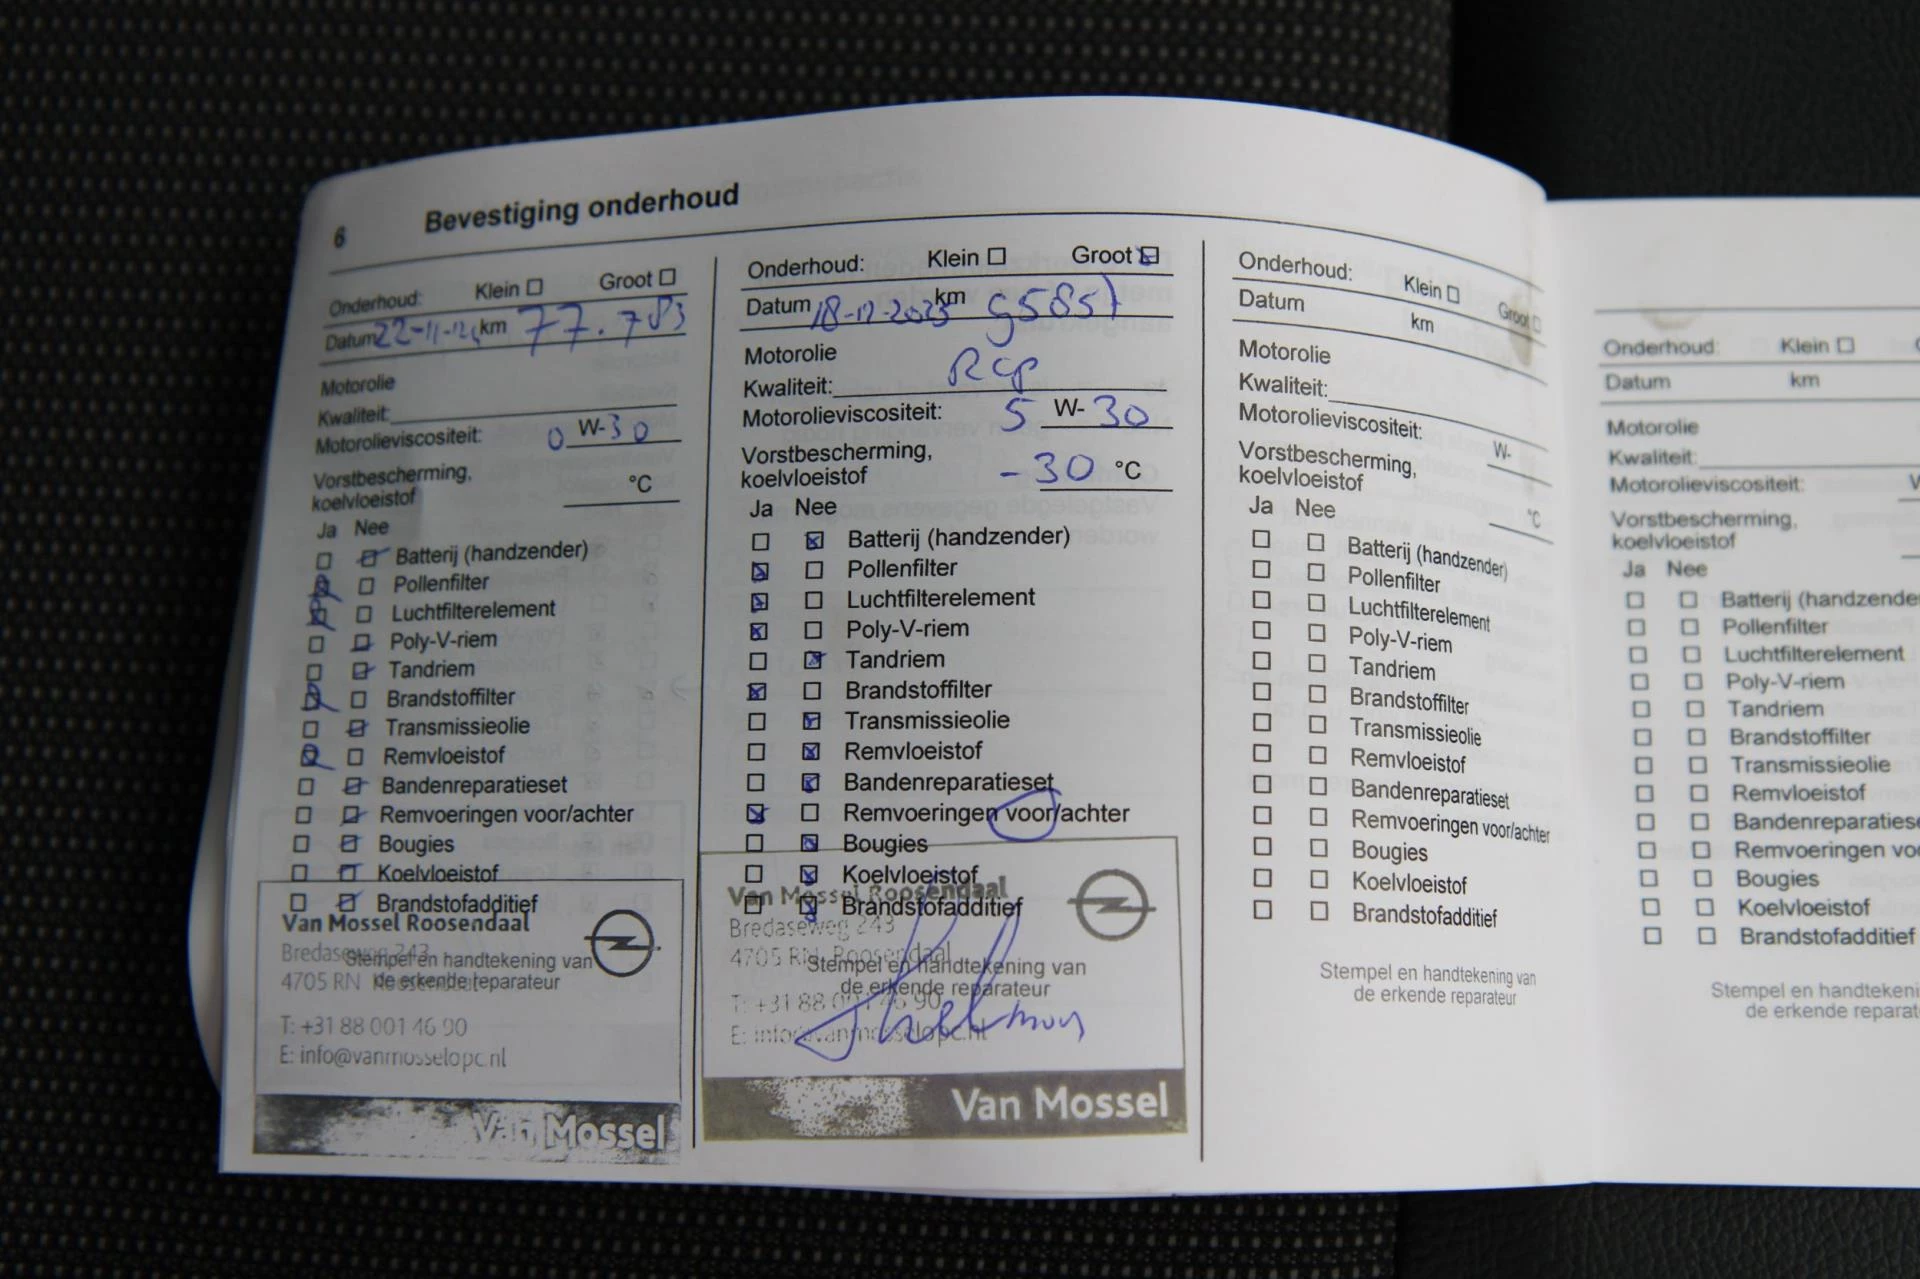 6 Bevestiging onderhoud
Onderhoud: Klein Groot
Datum km 77.783
Motorolie
Kwaliteit:
Motorolieviscositeit: 0 W-30
Vorstbescherming,
koelvloeistof °C
Ja Nee
Batterij (handzender)
Pollenfilter
Luchtfilterelement
Poly-V-riem
Tandriem
Brandstoffilter
Transmissieolie
Remvloeistof
Bandenreparatieset
Remvoeringen voor/achter
Bougies
Koelvloeistof
Brandstofadditief
Van Mossel Roosendaal
Bredaseweg 243
Stempel en handtekening van
4705 RN Roosendaal
de erkende reparateur
T: +31 88 001 46 90
E: info@vanmosselopc.nl
Van Mossel
Onderhoud: Klein Groot
Datum 18-12-2025 km 95851
Motorolie
Kwaliteit: RCP
Motorolieviscositeit: 5 W-30
Vorstbescherming,
koelvloeistof -30 °C
Ja Nee
Batterij (handzender)
Pollenfilter
Luchtfilterelement
Poly-V-riem
Tandriem
Brandstoffilter
Transmissieolie
Remvloeistof
Bandenreparatieset
Remvoeringen voor/achter
Bougies
Koelvloeistof
Van Mossel Roosendaal
Brandstofadditief
Bredaseweg 243
4705 RN Roosendaal
Stempel en handtekening van
de erkende reparateur
T: +31 88 001 46 90
E: info@vanmosselopc.nl
Van Mossel
Onderhoud: Klein Groot
Datum km
Motorolie
Kwaliteit:
Motorolieviscositeit: W-
Vorstbescherming,
koelvloeistof °C
Ja Nee
Batterij (handzender)
Pollenfilter
Luchtfilterelement
Poly-V-riem
Tandriem
Brandstoffilter
Transmissieolie
Remvloeistof
Bandenreparatieset
Remvoeringen voor/achter
Bougies
Koelvloeistof
Brandstofadditief
Stempel en handtekening van
de erkende reparateur
Onderhoud: Klein
Datum km
Motorolie
Kwaliteit:
Motorolieviscositeit:
Vorstbescherming,
koelvloeistof
Ja Nee
Batterij (handzender
Pollenfilter
Luchtfilterelement
Poly-V-riem
Tandriem
Brandstoffilter
Transmissieolie
Remvloeistof
Bandenreparatiese
Remvoeringen vo
Bougies
Koelvloeistof
Brandstofadditief
Stempel en handtekeni
de erkende reparat